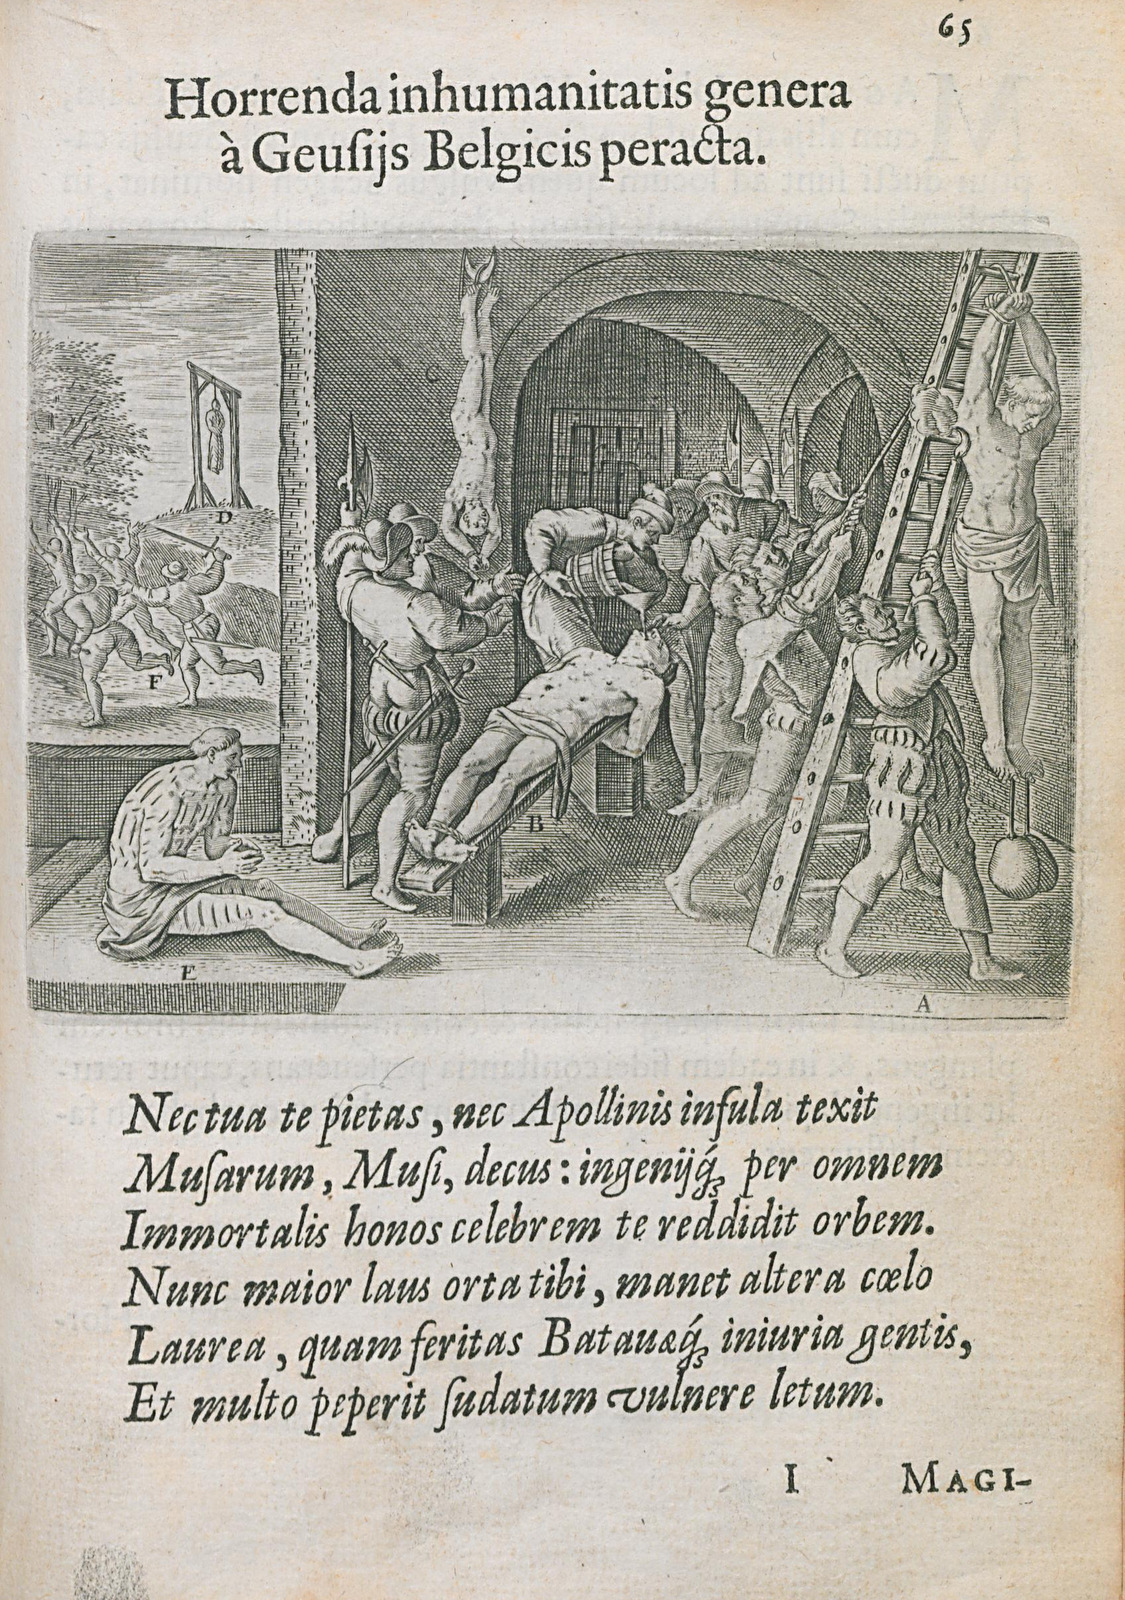 65
Horrenda inhumanitatis genera
à Geuſijs Belgicis peracta.
C
D
F
B
E
A
Nec tua te pietas, nec Apollinis inſula texit
Muſarum, Muſi, decus: ingenijq́ꝫ per omnem
Immortalis honos celebrem te reddidit orbem.
Nunc maior laus orta tibi, manet altera cœlo
Laurea, quam feritas Batauæq́ꝫ iniuria gentis,
Et multo peperit ſudatum vulnere letum.
I MAGI-